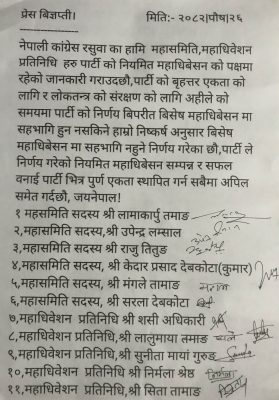 प्रेस बिज्ञप्ती। मिति:- २०८२|पौष|२६
नेपाली कांग्रेस रसुवा का हामि महासमिति,महाधिवेशन
प्रतिनिधि हरु पार्टी को नियमित महाधिबेसन को पक्षमा
रहेको जानकारी गराउदछौ,पार्टी को बृहत्तर एकता को
लागि र लोकतन्त्र को संरक्षण को लागि अहीले को
समयमा पार्टी को निर्णय बिपरीत बिषेष महाधिबेसन मा
सहभागि हुन नसकिने हाम्रो निष्कर्ष अनुसार बिसेष
महाधिबेसन मा सहभागि नहुने निर्णय गरेका छौ,पार्टी ले
निर्णय गरेको नियमित महाधिबेसन सम्पन्न र सफल
वनाई पार्टी भित्र पुर्ण एकता स्थापित गर्न सबैमा अपिल
समेत गर्दछौ, जयनेपाल!
१ महसमिति सदस्य श्री लामाकार्पु तमाङ
२,महासमिति सदस्य, श्री उपेन्द्र लम्साल
३,महासमिति सदस्य श्री राजु तितुङ
४,महासमिति सदस्य, श्री केदार प्रसाद देबकोटा(कुमार)
५,महासमिति सदस्य, श्री मंगले तामाङ
६,महासमिति सदस्य, श्री सरला देबकोटा
७,महाधिवेशन प्रतिनिधि श्री शसी अधिकारी
८,महाधिवेशन प्रतिनिधी,श्री लालुमाया तमाङ
९,महाधिवेशन प्रतिनिधि,श्री सुनीता मायां गुरुङ
१०,महाधिवेशन प्रतिनिधि,श्री निर्मला श्रेष्ठ निर्मला
११,महाधिवेशन प्रतिनिधि,श्री सिता तामाङ